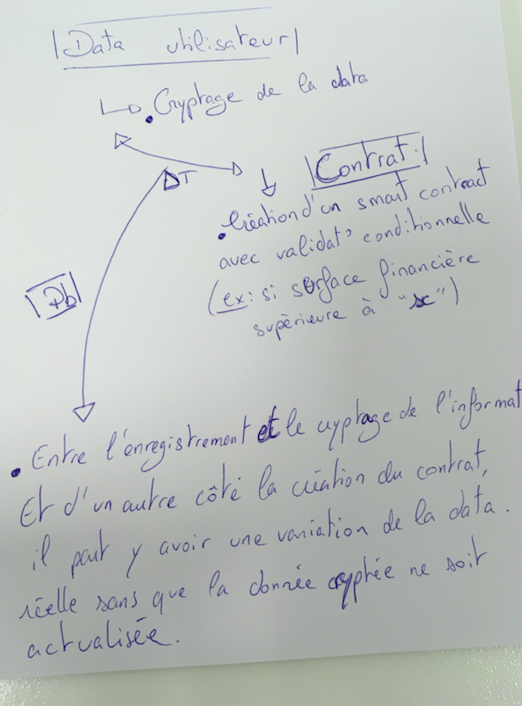 Data utilisateur
. Cryptage de la data
ΔT
Contrat.
. Création d'un smart contract
avec validat° conditionnelle
(ex: si surface financière
supèrieure à "x")
Pb
. Entre l'enregistrement et le cryptage de l'informat
Et d'un autre côté la création du contrat,
il peut y avoir une variation de la data.
réelle sans que la donnée cryptée ne soit
actualisée.